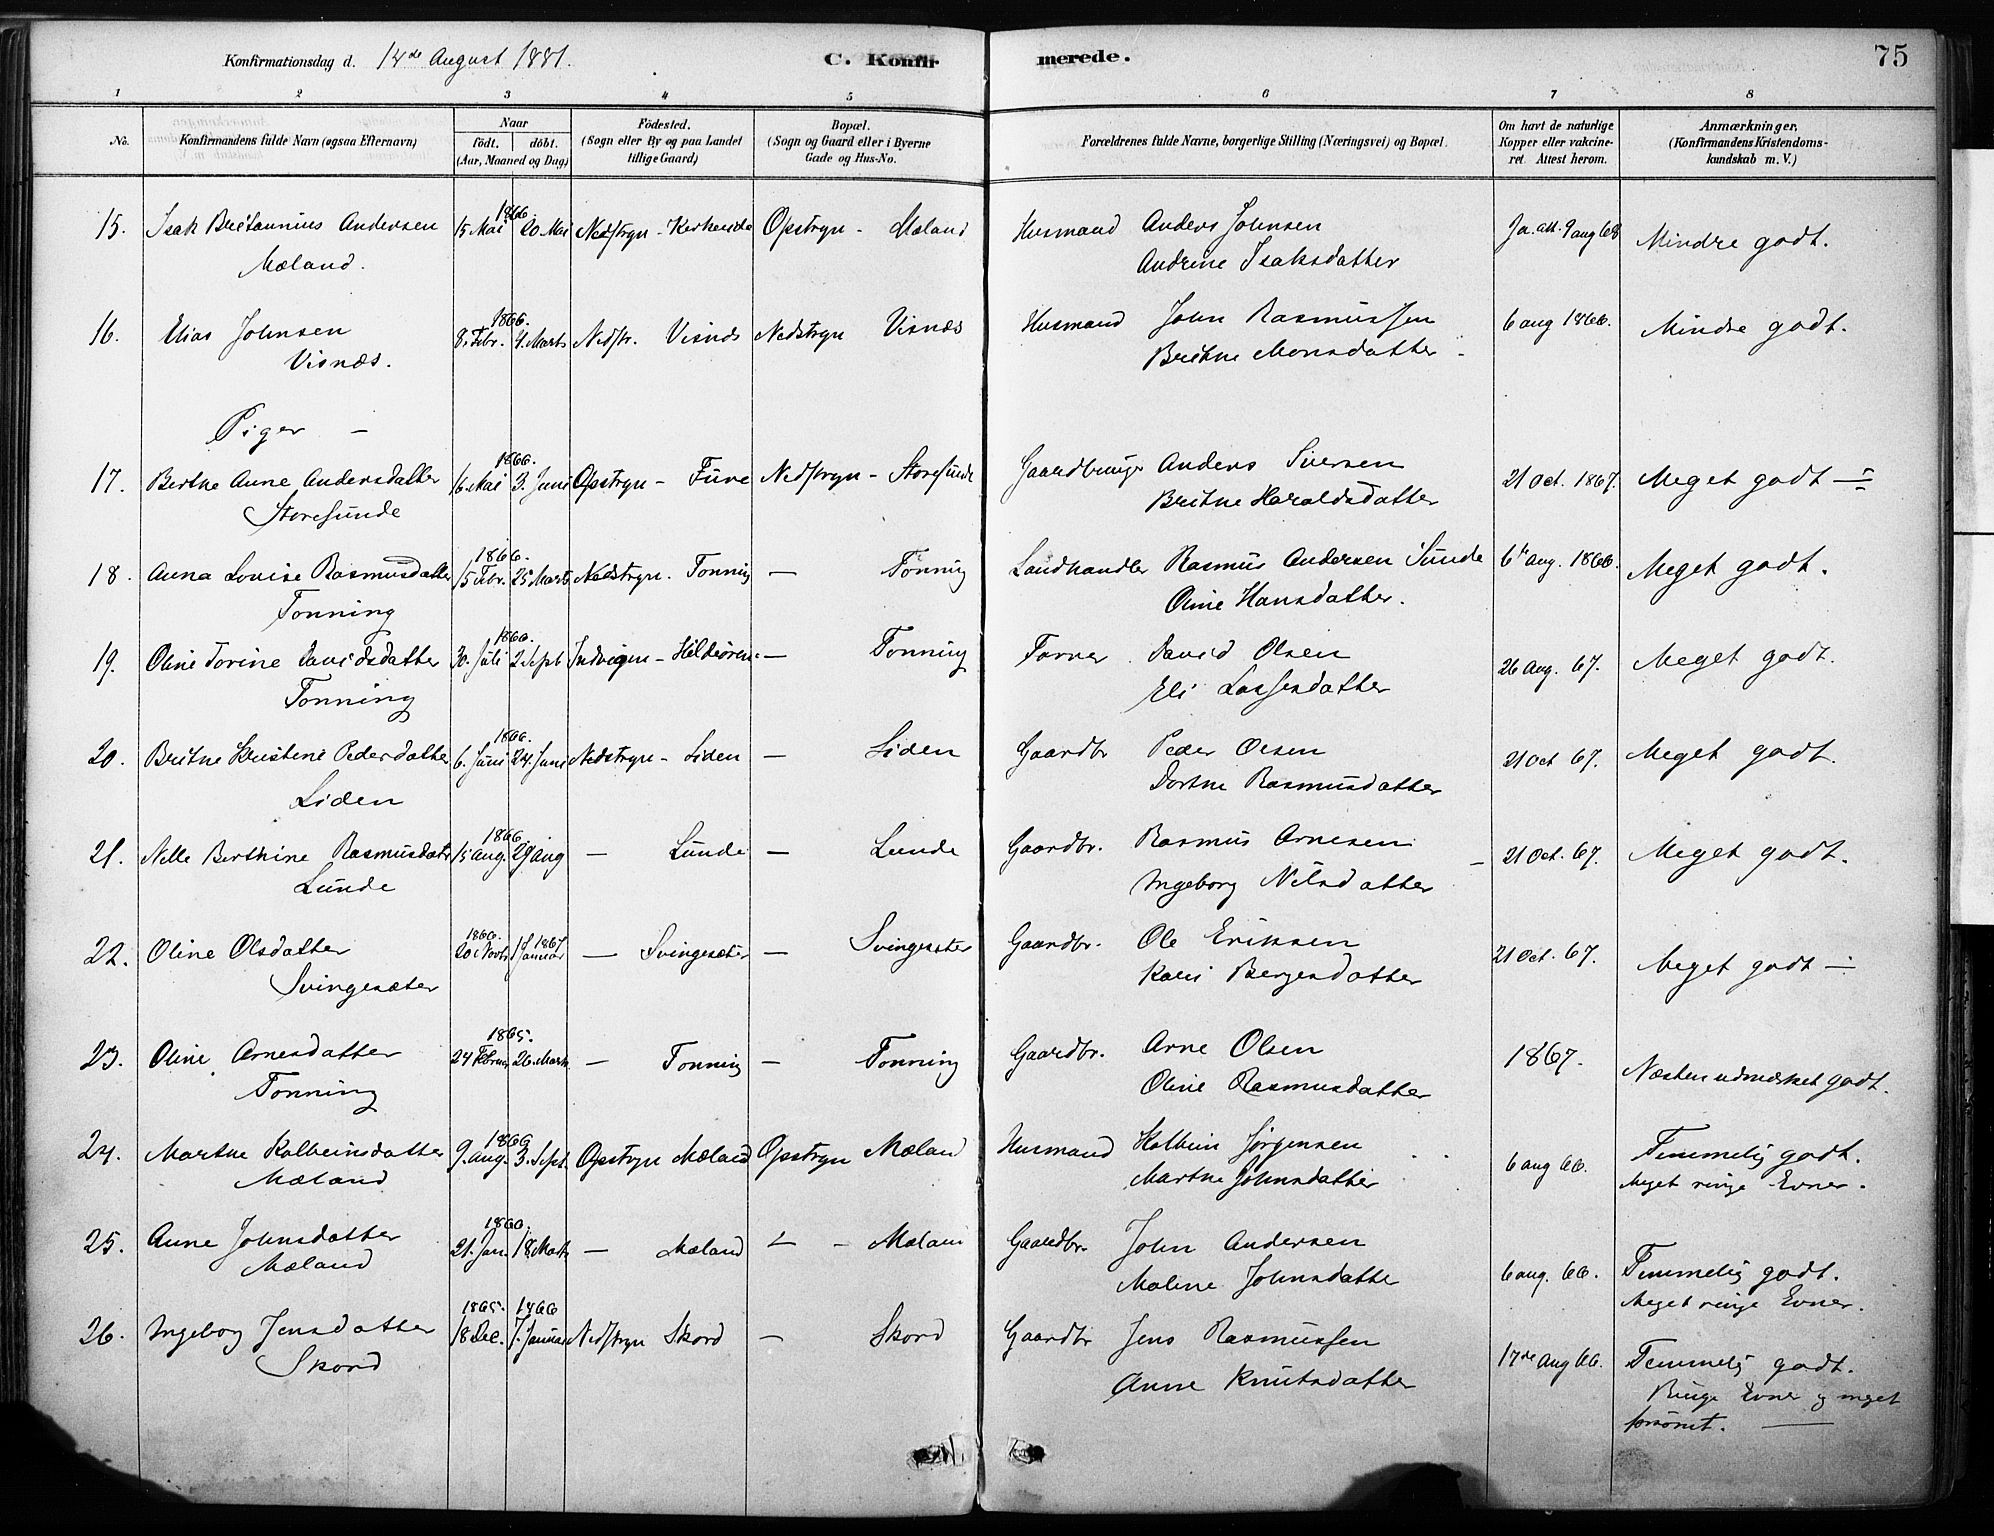 Konfirmationsdag d. 14de August 1881. C. Konfirmerede. 75
1 2 3 4 5 6 7 8
No. Konfirmandens fulde Navn (ogsaa Efternavn) Naar født. døbt. (Aar, Maaned og Dag) Fødested. (Sogn eller By og paa Landet tillige Gaard) Bopæl. (Sogn og Gaard eller i Byerne Gade og Hus-No. Forældrenes fulde Navne, borgerlige Stilling (Næringsvei) og Bopæl. Om havt de naturlige Kopper eller vakcineret. Attest herom. Anmærkninger, (Konfirmandens Kristendomskundskab m. V.)
1866.
15. Isak Britannius Andersen 15 Mai 20 Mai Nedstryn - Opstryn - Mæland Husmand Anders Johnsen Ja. att. 9 aug 68 Mindre godt.
Mæland. Andrine Isaksdatter
1866.
16. Elias Johnsen 8. Febr. 4. Marts Nedstr. Visnæs Nedstryn Visnæs Husmand John Rasmussen 6 aug 1866. Mindre godt.
Visnæs. Brithe Monsdatter
Piger -
1866.
17. Berthe Anne Andersdatter 16. Mai 3. Juni Opstryn - Fure Nedstryn - Storesunde Gaardbruger Anders Siversen 21 Oct. 1867. Meget godt -
Storesunde Brithe Haraldsdatter
1866.
18. Anna Lovise Rasmusdatter 15 Febr. 25 Marts Nedstryn. Tonning — Tonning Landhandler Rasmus Andersen Sunde 6te aug. 1866. Meget godt.
Tonning Oline Hansdatter.
1866.
19. Oline Torine Davidsdatter 30. Juli 2 Sept Indvigen - Hildeøren - — Tonning Farver David Olsen 26 Aug. 67. Meget godt.
Tonning Eli Lassesdatter
1866.
20. Brithe Kristine Pedersdatter 6. Juni 24. Juni Nedstryn - Liden — Liden Gaardbr Peder Olsen 21 Oct 67. Meget godt.
Liden Dorthe Rasmusdatter
1866.
21. Nelle Berthine Rasmusdatr 15 Aug. 29 Aug — Lunde — Lunde Gaardbr. Rasmus Arnesen 21 Oct. 67. Meget godt.
Lunde Ingeborg Nilsdatter
1866. 1867
22. Oline Olsdatter 20 Novbr 1 Januar — Svingesæter — Svingesæter Gaardbr. Ole Eriksen 21 Oct. 67. Meget godt -
Svingesæter Kari Bergesdatter
1865.
23. Oline Arnesdatter 24 Februar 26. Marts — Tonning — Tonning Gaardbr. Arne Olsen 1867. Næsten udmerket godt.
Tonning Oline Rasmusdatter
1866
24. Marthe Kolbeinsdatter 9. Aug. 3. Sept. Opstryn Mæland Opstryn Mæland Husmand Kolbein Jørgensen 6 aug 66. Temmelig godt.
Mæland Marthe Johnsdatter Meget ringe Evner.
1866.
25. Anne Johnsdatter 21. Jan. 18. Marts — Mæland — Mæland Gaardbr. John Andersen 6 aug. 66. Temmelig godt.
Mæland Maline Johnsdatter Meget ringe Evner.
1865. 1866
26. Ingeborg Jensdatter 18 Dec. 7. Januar Nedstryn Skord — Skord Gaardbr Jens Rasmussen 17de Aug 66. Temmelig godt.
Skord Anne Knutsdatter Ringe Evner og meget